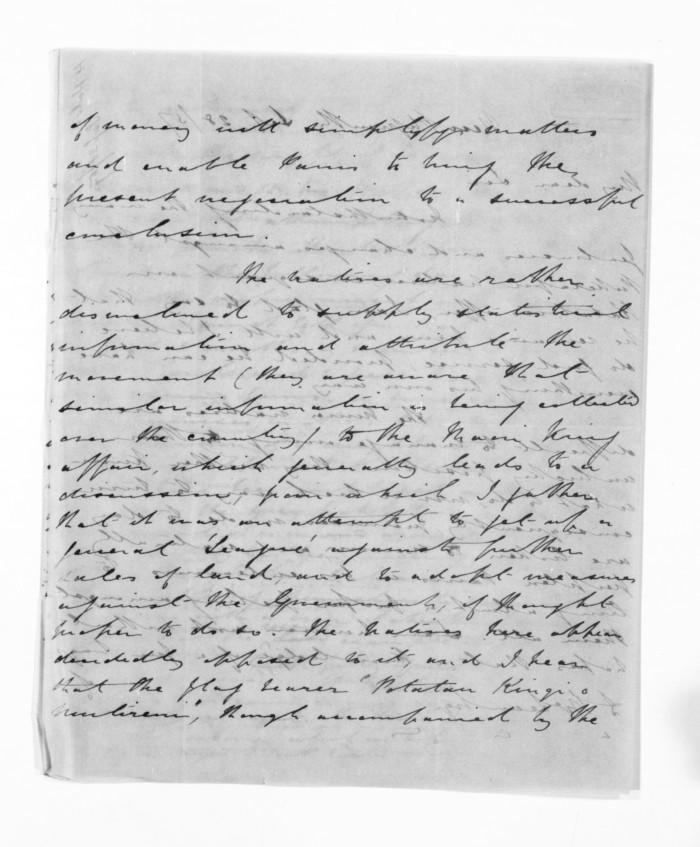 of money will simplify matters
and enable Parris to bring the
present negociation to a successful
conclusion.
The natives are rather
disinclined to supply statistical
information and attribute the
movement (they are aware that
similar information is being collected
over the country) to the Maori King
affair, which generally leads to a
discussion, from which I gather
that it was an attempt to get up a
general 'League' against further
sales of land and to adopt measures
against the Government, if thought
proper to do so. The Natives here appear
decidedly opposed to it, and I hear
that the flag bearer "Potatau Kingi o
Niutireni", though accompanied by the